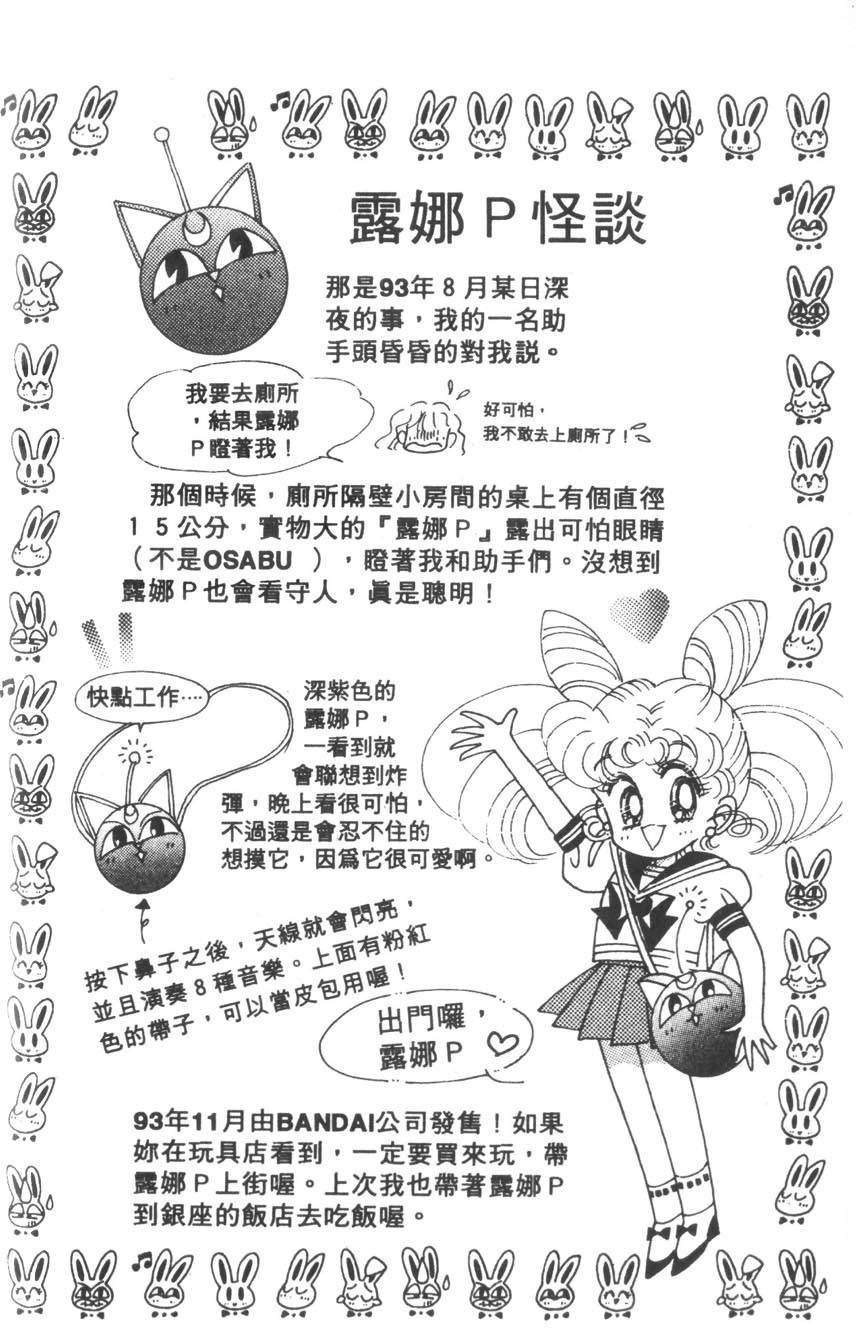 露娜P怪談
那是93年8月某日深
夜的事,我的一名助
手頭昏昏的對我説。
我要去廁所
,結果露娜
P瞪著我!
好可怕,
我不敢去上廁所了!
那個時候,廁所隔壁小房間的桌上有個直徑
15公分,實物大的『露娜P』露出可怕眼睛
(不是OSABU ),瞪著我和助手們。沒想到
露娜P也會看守人,眞是聰明!
快點工作‥‥
深紫色的
露娜P,
一看到就
會聯想到炸
彈,晚上看很可怕,
不過還是會忍不住的
想摸它,因爲它很可愛啊。
按下鼻子之後,天線就會閃亮,
並且演奏8種音樂。上面有粉紅
色的帶子,可以當皮包用喔!
出門囉,
露娜P
93年11月由BANDAI公司發售!如果
妳在玩具店看到,一定要買來玩,帶
露娜P上街喔。上次我也帶著露娜P
到銀座的飯店去吃飯喔。